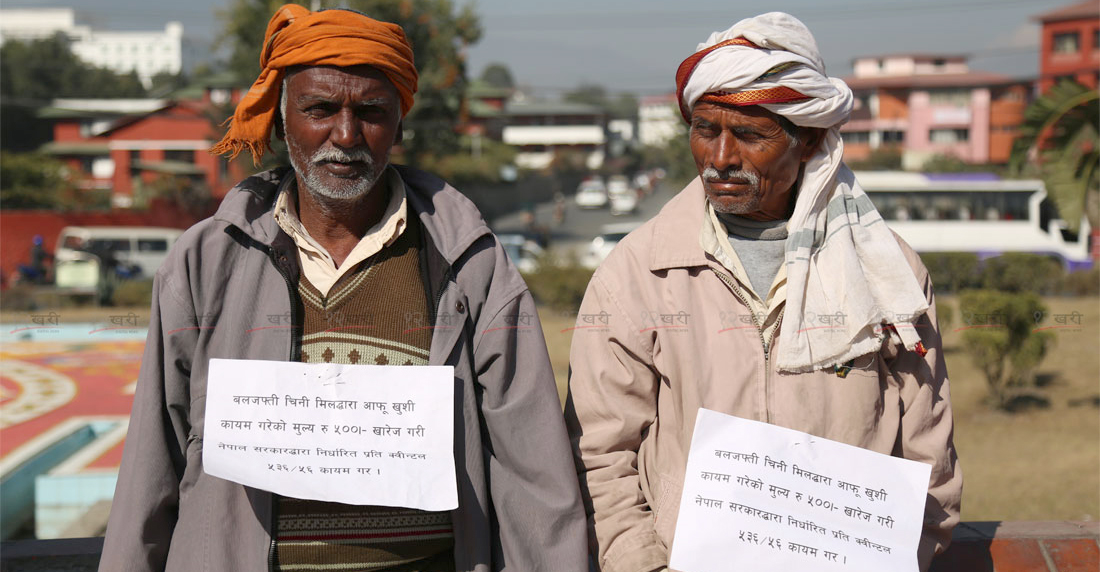 बलजफ्ती चिनी मिलद्धारा आफू खुशी
कायम गरेको मुल्य रु ५००।- खारेज गरी
नेपाल सरकारद्धारा निर्धारित प्रति क्वीन्टल
५३६/५६ कायम गर ।
बलजफ्ती चिनी मिलद्धारा आफू खुशी
कायम गरेको मुल्य रु ५००।- खारेज गरी
नेपाल सरकारद्धारा निर्धारित प्रति क्वीन्टल
५३६/५६ कायम गर ।